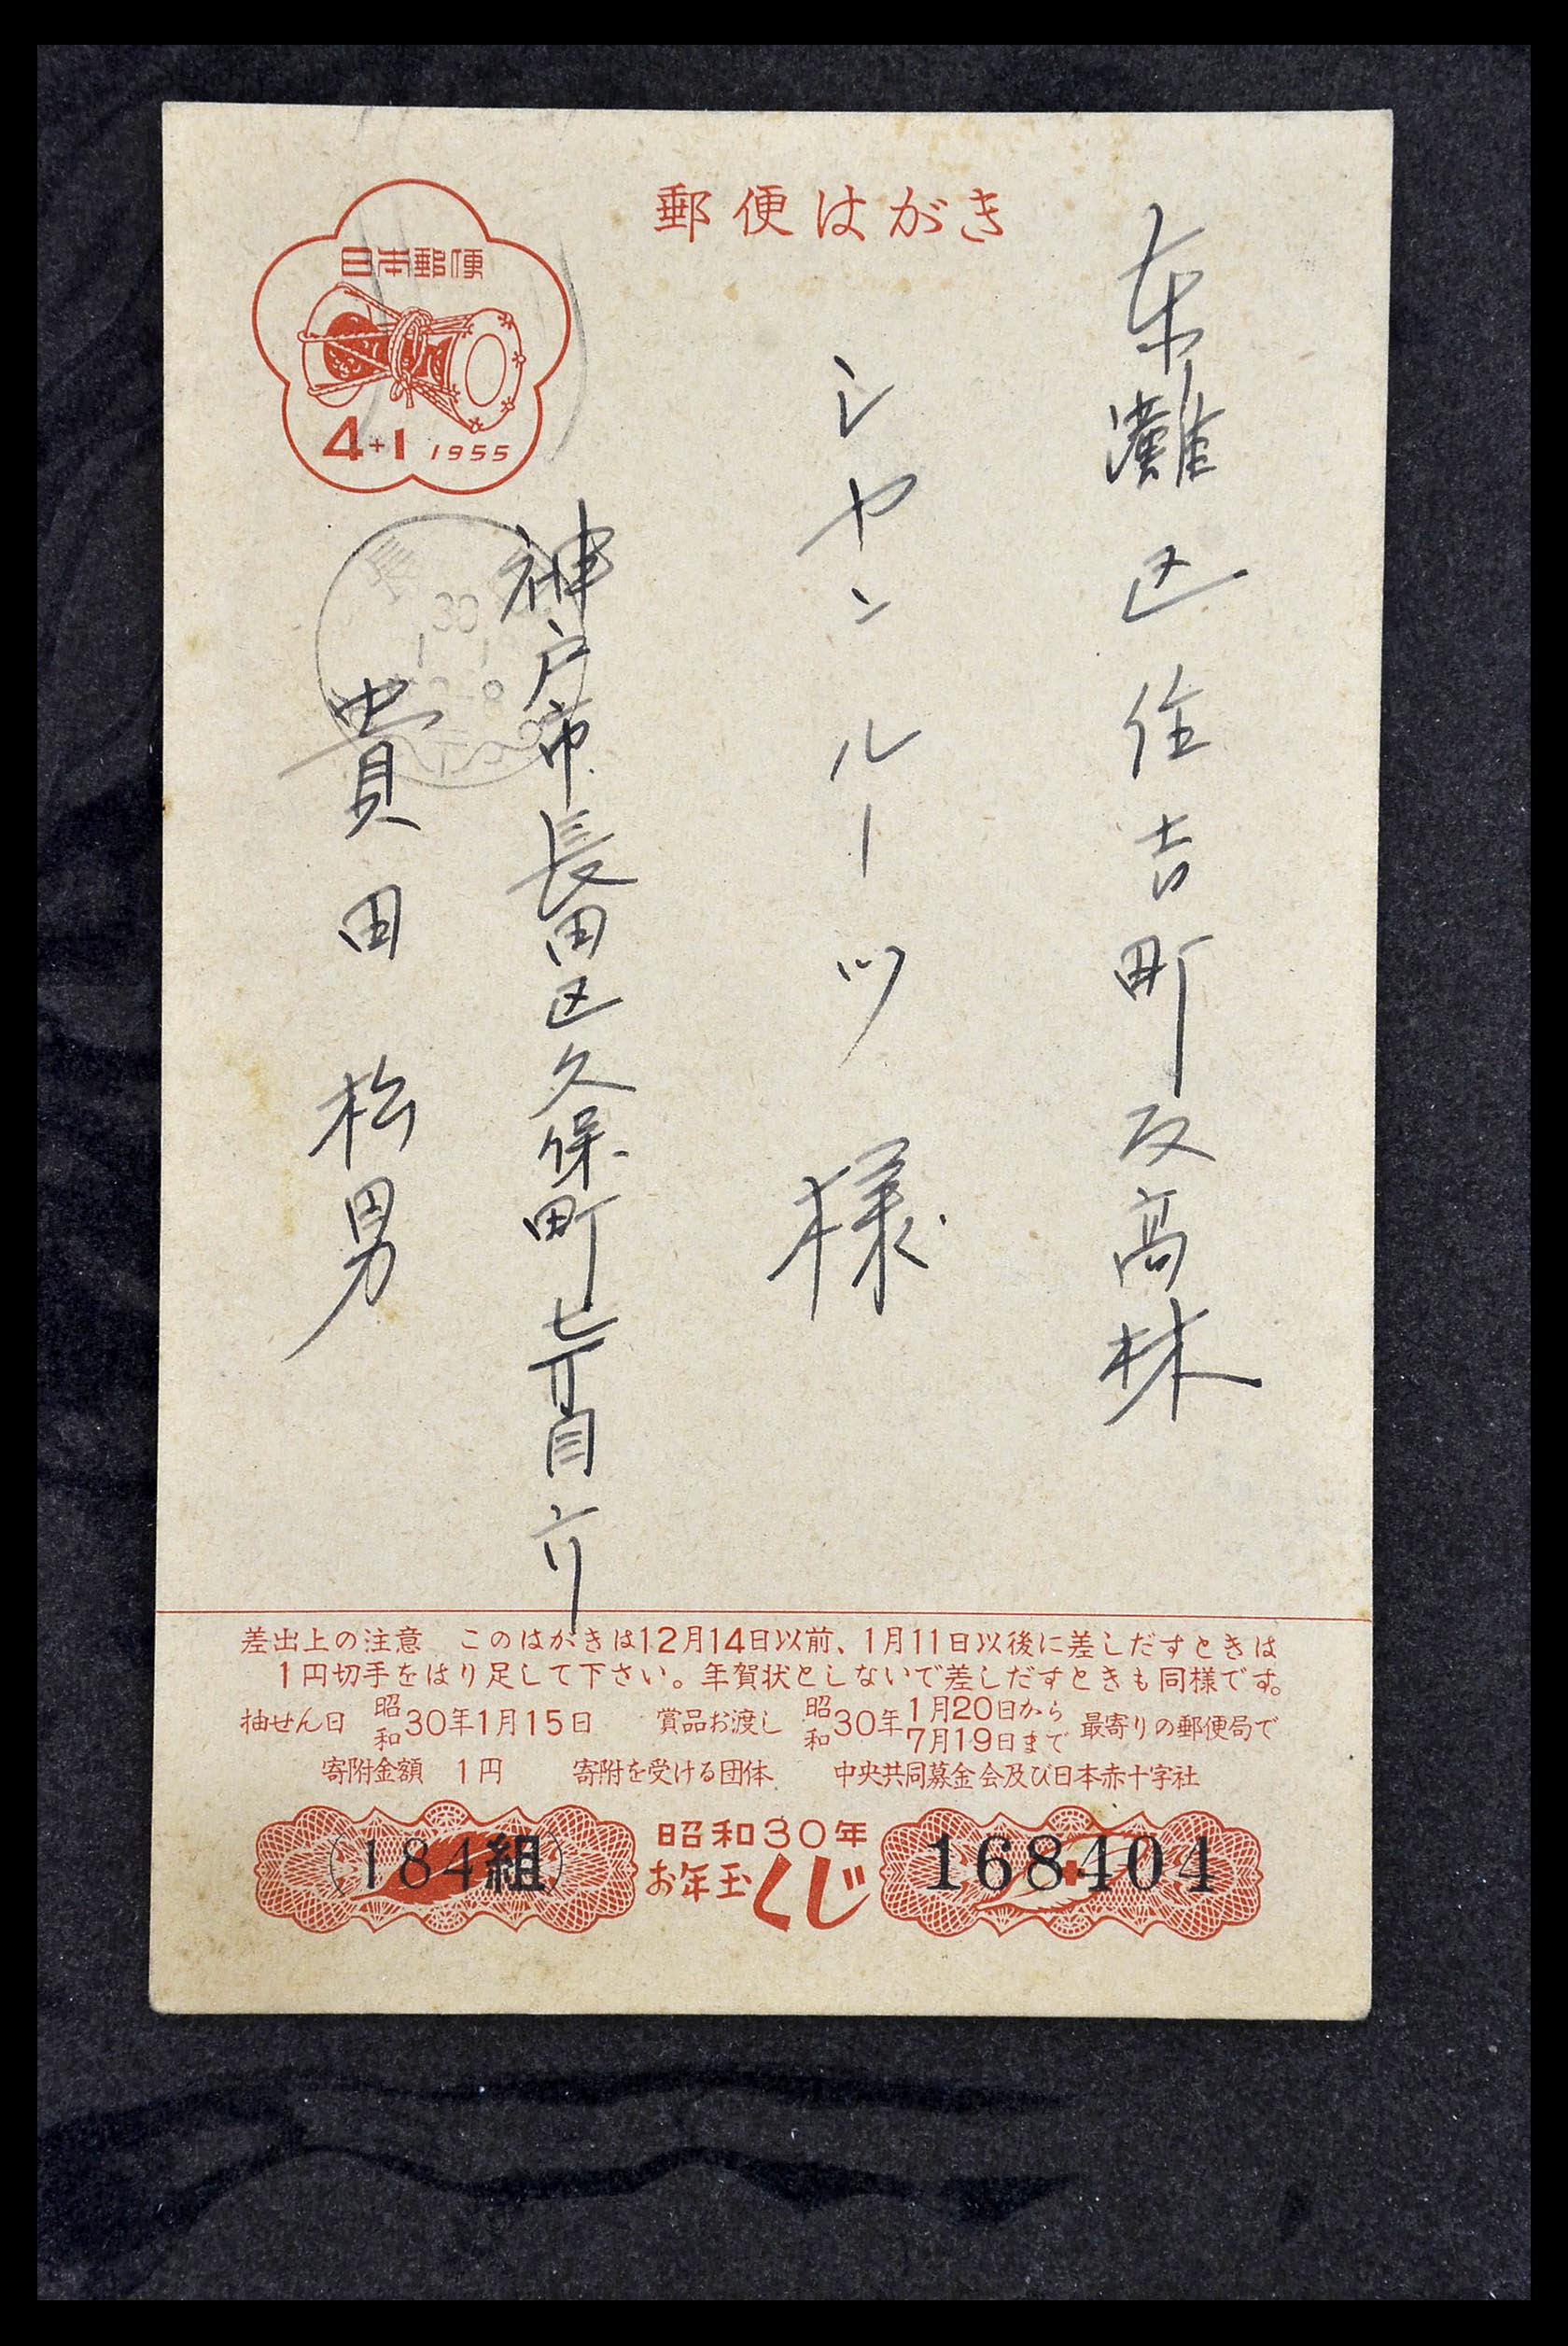 郵便はがき
日本郵便
4+1 1955
東灘区住吉町反高林
シヤンルーツ様
神戸市長田区久保町七丁目六ノ
貴田松男
長
30
1 1
差出上の注意 このはがきは12月14日以前、1月11日以後に差しだすときは
1円切手をはり足して下さい。年賀状としないで差しだすときも同様です。
抽せん日 昭和30年1月15日 賞品お渡し 昭和30年1月20日から7月19日まで最寄りの郵便局で
寄附金額 1円 寄附を受ける団体 中央共同募金会及び日本赤十字社
(184組)
昭和30年
お年玉くじ
168404